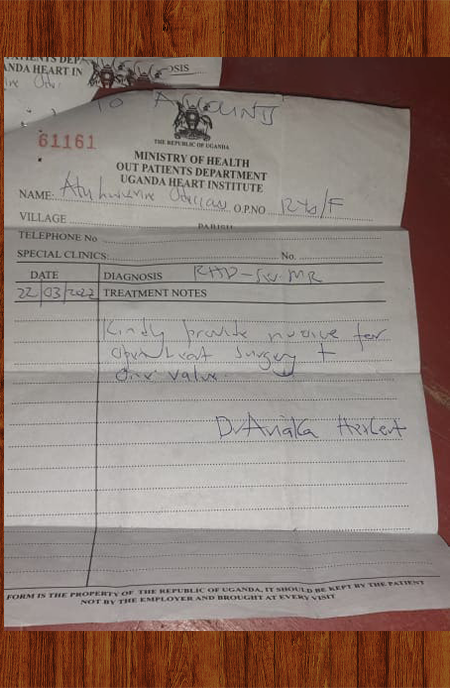 ATIENTS DEPA
ANDA HEART IN
OSIS
TO ACCOUNTS
61161
THE REPUBLIC OF UGANDA
MINISTRY OF HEALTH
OUT PATIENTS DEPARTMENT
UGANDA HEART INSTITUTE
NAME: O.P.NO
VILLAGE PARISH
TELEPHONE No
SPECIAL CLINICS: No.
DATE DIAGNOSIS RHD-SV-MR
22/03/2022 TREATMENT NOTES
Kindly provide invoice for
open heart surgery +
one valve.
Dr Ariaka Herbert
FORM IS THE PROPERTY OF THE REPUBLIC OF UGANDA, IT SHOULD BE KEPT BY THE PATIENT
NOT BY THE EMPLOYER AND BROUGHT AT EVERY VISIT